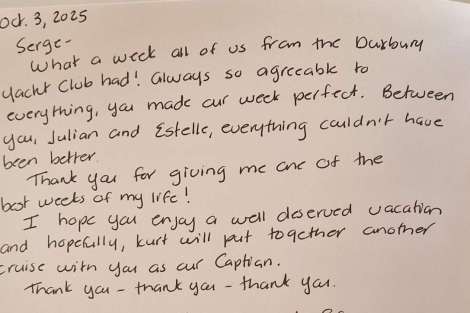 Oct. 3, 2025
Serge-
What a week all of us from the Duxbury
Yacht Club had! Always so agreeable to
everything, you made our week perfect. Between
you, Julian and Estelle, everything couldn't have
been better.
Thank you for giving me one of the
best weeks of my life!
I hope you enjoy a well deserved vacation
and hopefully, Kurt will put together another
cruise with you as our Captian.
Thank you - thank you - thank you.